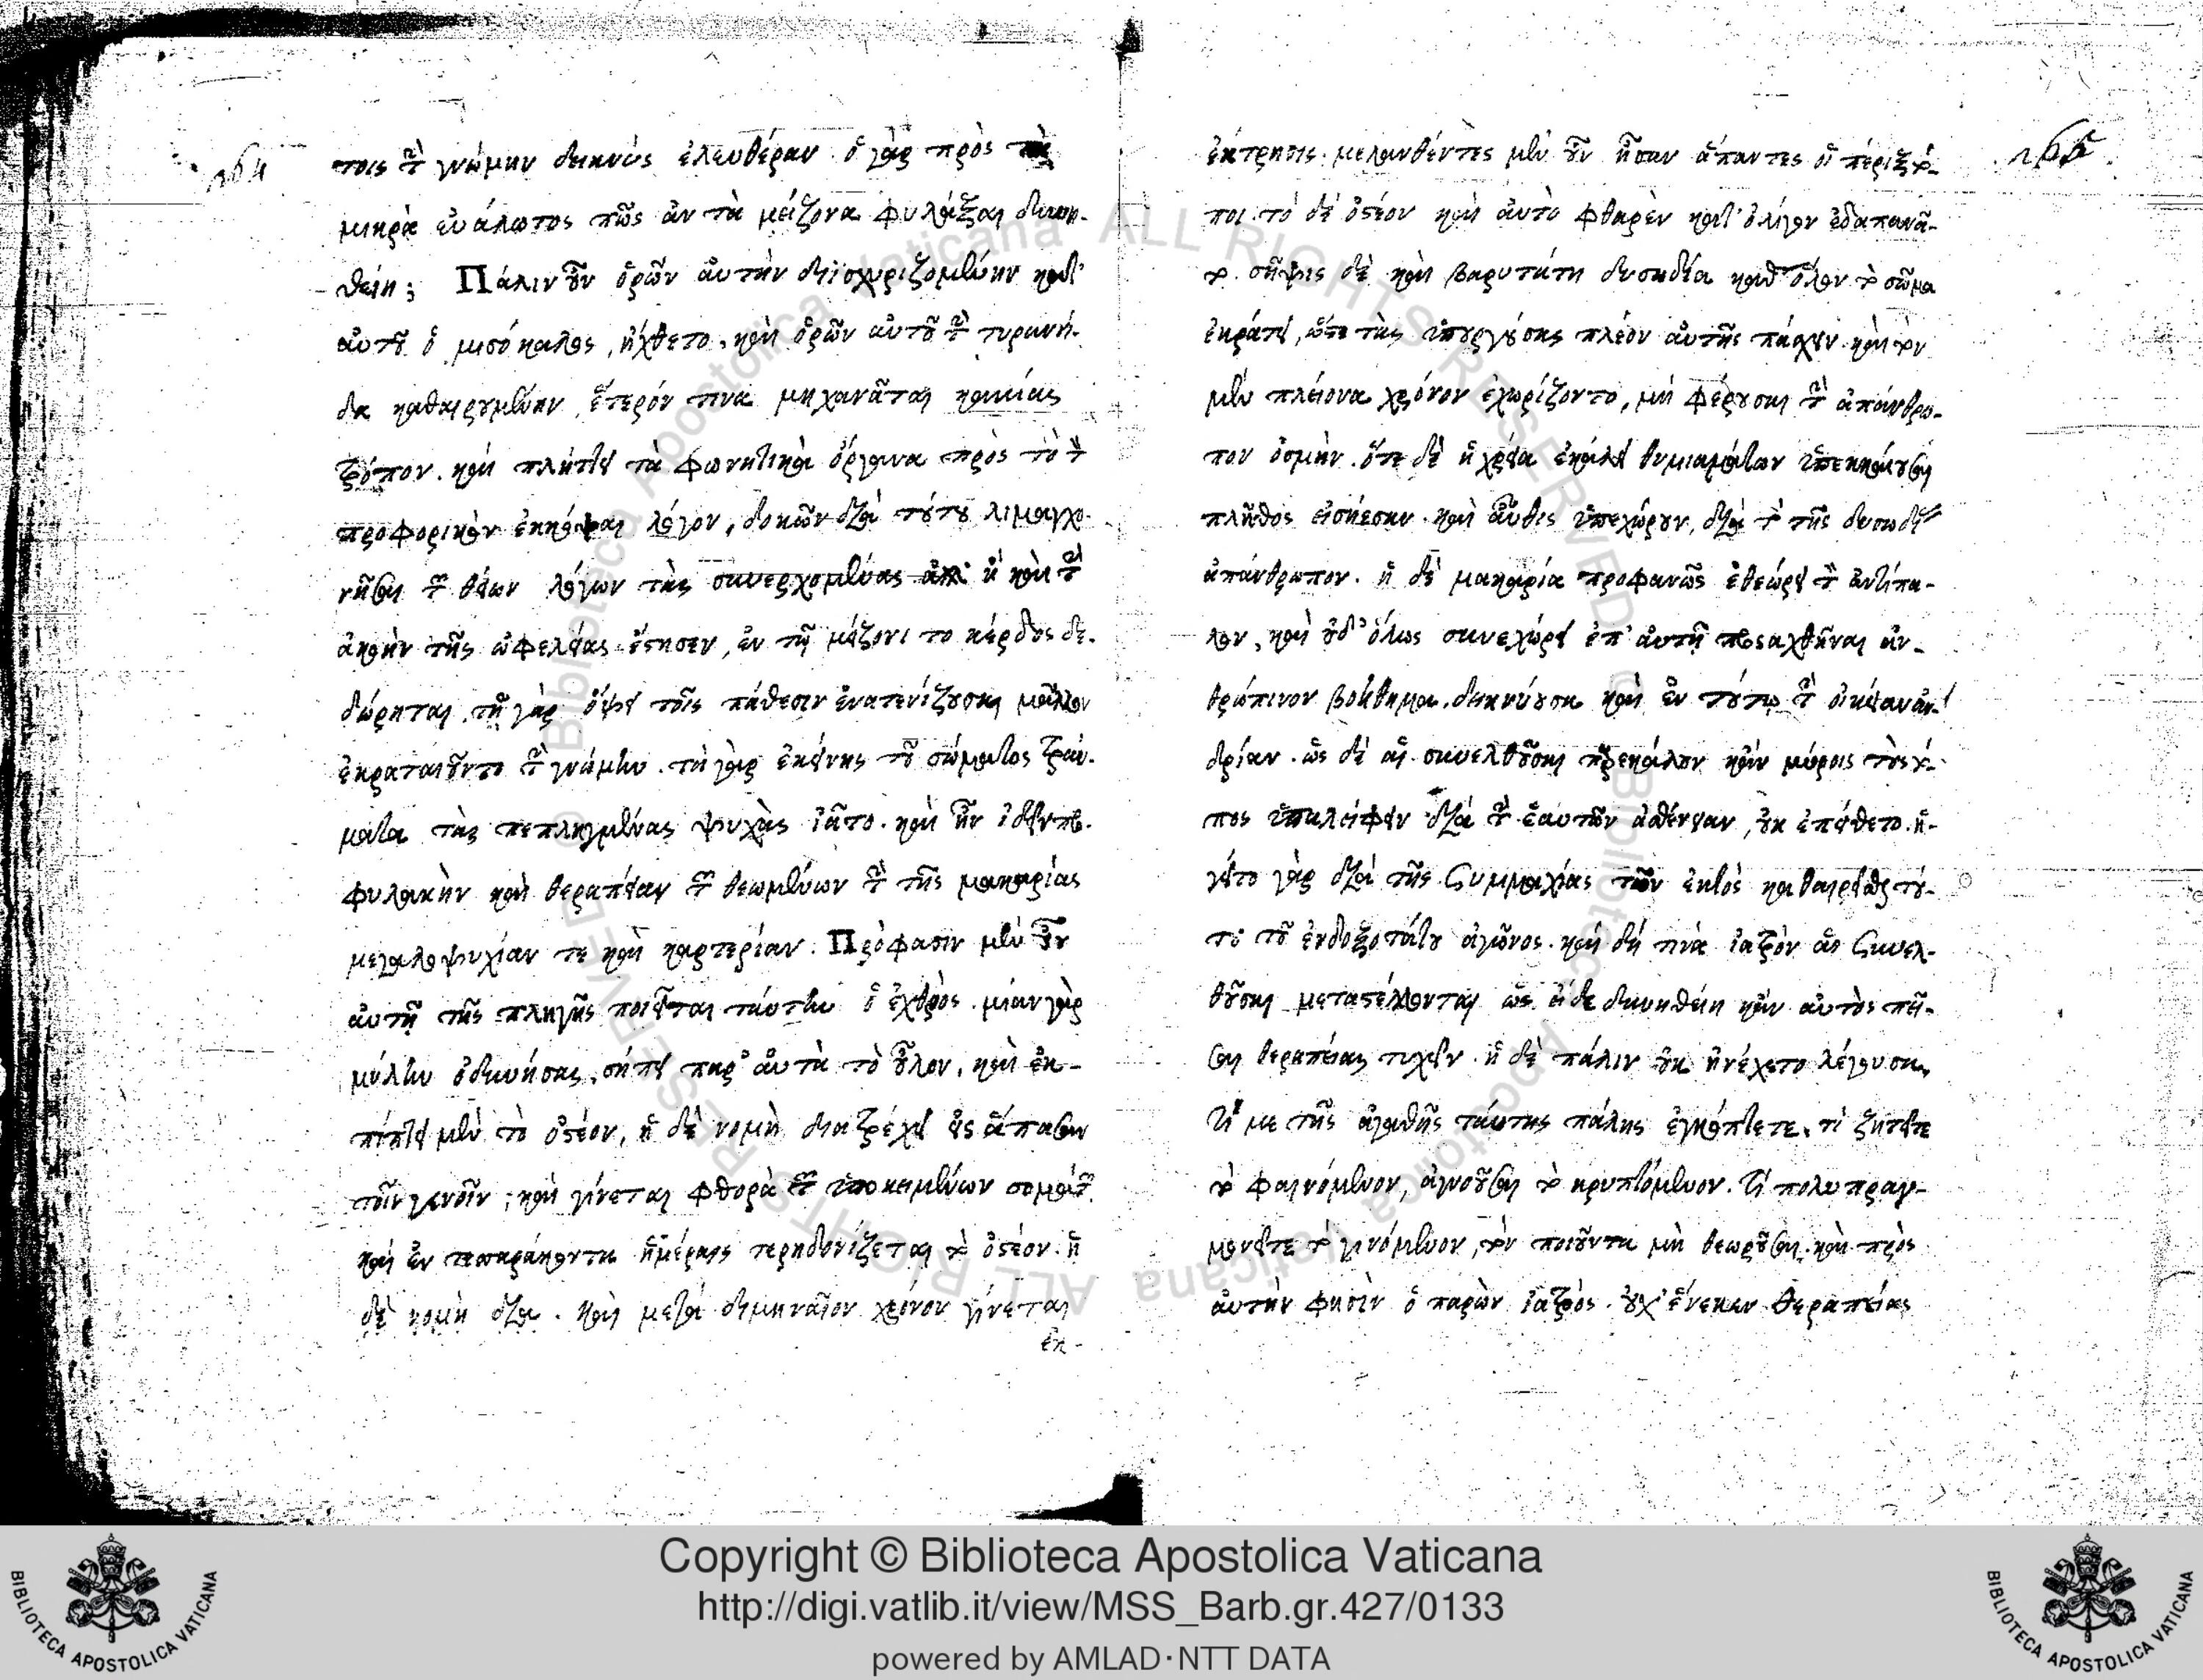 264
τοις τὴν γνώμην δεικνὺς ἐλευθέραν. ὁ γὰρ πρὸς τὰ
μικρὰ εὐάλωτος πῶς ἂν τὰ μείζονα φυλάξαι δυνη-
θείη; Πάλιν οὖν ὁρῶν αὐτὴν διϊσχυριζομένην κατ'
αὐτοῦ ὁ μισόκαλος, ἤχθετο. καὶ ὁρῶν αὐτοῦ τὴν τυρανί-
δα καθαιρουμένην, ἕτερόν τινα μηχανᾶται κακίας
τρόπον. καὶ πλήττει τὰ φωνητικὰ ὄργανα πρὸς τὸ τὸν
προφορικὸν ἐκκόψαι λόγον, δοκῶν διὰ τούτου λιμαγχο-
νῆσαι τῶν θείων λόγων τὰς συνερχομένας εἰ καὶ τὴν
ἀκοὴν τῆς ὠφελείας ἔστησεν, ἐν τῷ μείζονι το κέρδος δε-
δώρηται. τῇ γὰρ ὄψει τοῖς πάθεσιν ἐνατενίζουσαι μᾶλλον
ἐκραταιοῦντο τὴν γνώμην. τὰ γὰρ ἐκείνης τοῦ σώματος τραύ-
ματα τὰς πεπληγμένας ψυχὰς ἰᾶτο. καὶ ἦν ἰδεῖν προ-
φυλακὴν καὶ θεραπείαν τῶν θεωμένων τὴν τῆς μακαρίας
μεγαλοψυχίαν τε καὶ καρτερίαν. Πρόφασιν μὲν οὖν
αὐτῇ τῆς πληγῆς ποιεῖται ταύτην ὁ ἐχθρός. μίαν γὰρ
μύλην ὀδυνήσας, σήπει παρ' αὐτὰ τὸ οὖλον, καὶ ἐκ-
πίπτει μὲν τὸ ὀστέον, ἡ δὲ νομὴ διατρέχει εἰς ἅπασαν
τοῖν γενοῖν; καὶ γίνεται φθορὰ τῶν ὑποκειμένων σομάτων
καὶ ἐν τεσσαράκοντα ἡμέραις τερηδονίζεται τὸ ὀστέον. ἡ
δὲ νομὴ διὰ. καὶ μετὰ διμηναῖον χρόνον γίνεται
ἐκ-
265
ἐκτρησις. μελανθέντες μὲν οὖν ἦσαν ἅπαντες οἱ πέριξ τό-
ποι. τὸ δὲ ὀστέον καὶ αὐτὸ φθαρὲν κατ' ὀλίγον ἐδαπανᾶ-
το. σῆψις δὲ καὶ βαρυτάτη δυσηδία καθ' ὅλον τὸ σῶμα
ἐκράτει, ὥστε τὰς ὑπουργούσας πλέον αὐτῆς πάσχειν. καὶ τὸν
μὲν πλείονα χρόνον ἐχωρίζοντο, μὴ φέρουσαι τὴν ἀπάνθρω-
πον ὀσμήν. ὅτε δὲ ἡ χρεία ἐκάλει θυμιαμάτων ὑπεκκαίουσαι
πλῆθος εἰσήεσαν. καὶ αὖθις ὑπεχώρουν, διὰ τὸ τῆς δυσωδίας
ἀπάνθρωπον. ἡ δὲ μακαρία προφανῶς ἐθεώρει τὸν ἀντίπα-
λον, καὶ οὐδ' ὅλως συνεχώρει ἐπ' αὐτῇ προσαχθῆναι ἀν-
θρώπινον βοήθημα. δεικνύουσα καὶ ἐν τούτῳ τὴν οἰκείαν ἀν-
δρίαν. ὡς δὲ αἱ συνελθοῦσαι παρεκάλουν κἂν μύροις τοὺς τό-
πους ὑπαλείφειν διὰ τὴν ἑαυτῶν ἀσθένειαν, οὐκ ἐπείθετο. ἡ-
γεῖτο γὰρ διὰ τῆς συμμαχίας τῶν ἐκτὸς καθαιρεῖσθαι τού-
το τοῦ ἐνδοξοτάτου ἀγῶνος. καὶ δή τινα ἰατρὸν αἱ συνελ-
θοῦσαι μεταστέλλονται ὡς εἰδε δυνηθείη κἂν αὐτὸς πεῖ-
σαι θεραπείας τυχεῖν. ἡ δὲ πάλιν οὐκ ἠνέχετο λέγουσα,
τί με τῆς ἀγαθῆς ταύτης πάλης ἐγκόπτετε. τί ζητεῖτε
τὸ φαινόμενον, ἀγνοοῦσαι τὸ κρυπτόμενον. τί πολυπραγ-
μονεῖτε τὸ γινόμενον, τὸν ποιοῦντα μὴ θεωροῦσαι. καὶ πρὸς
αὐτὴν φησὶν ὁ παρὼν ἰατρὸς. οὐχ' ἕνεκεν θεραπείας
Copyright © Biblioteca Apostolica Vaticana
http://digi.vatlib.it/view/MSS_Barb.gr.427/0133
powered by AMLAD·NTT DATA
BIBLIOTECA APOSTOLICA VATICANA
BIBLIOTECA APOSTOLICA VATICANA